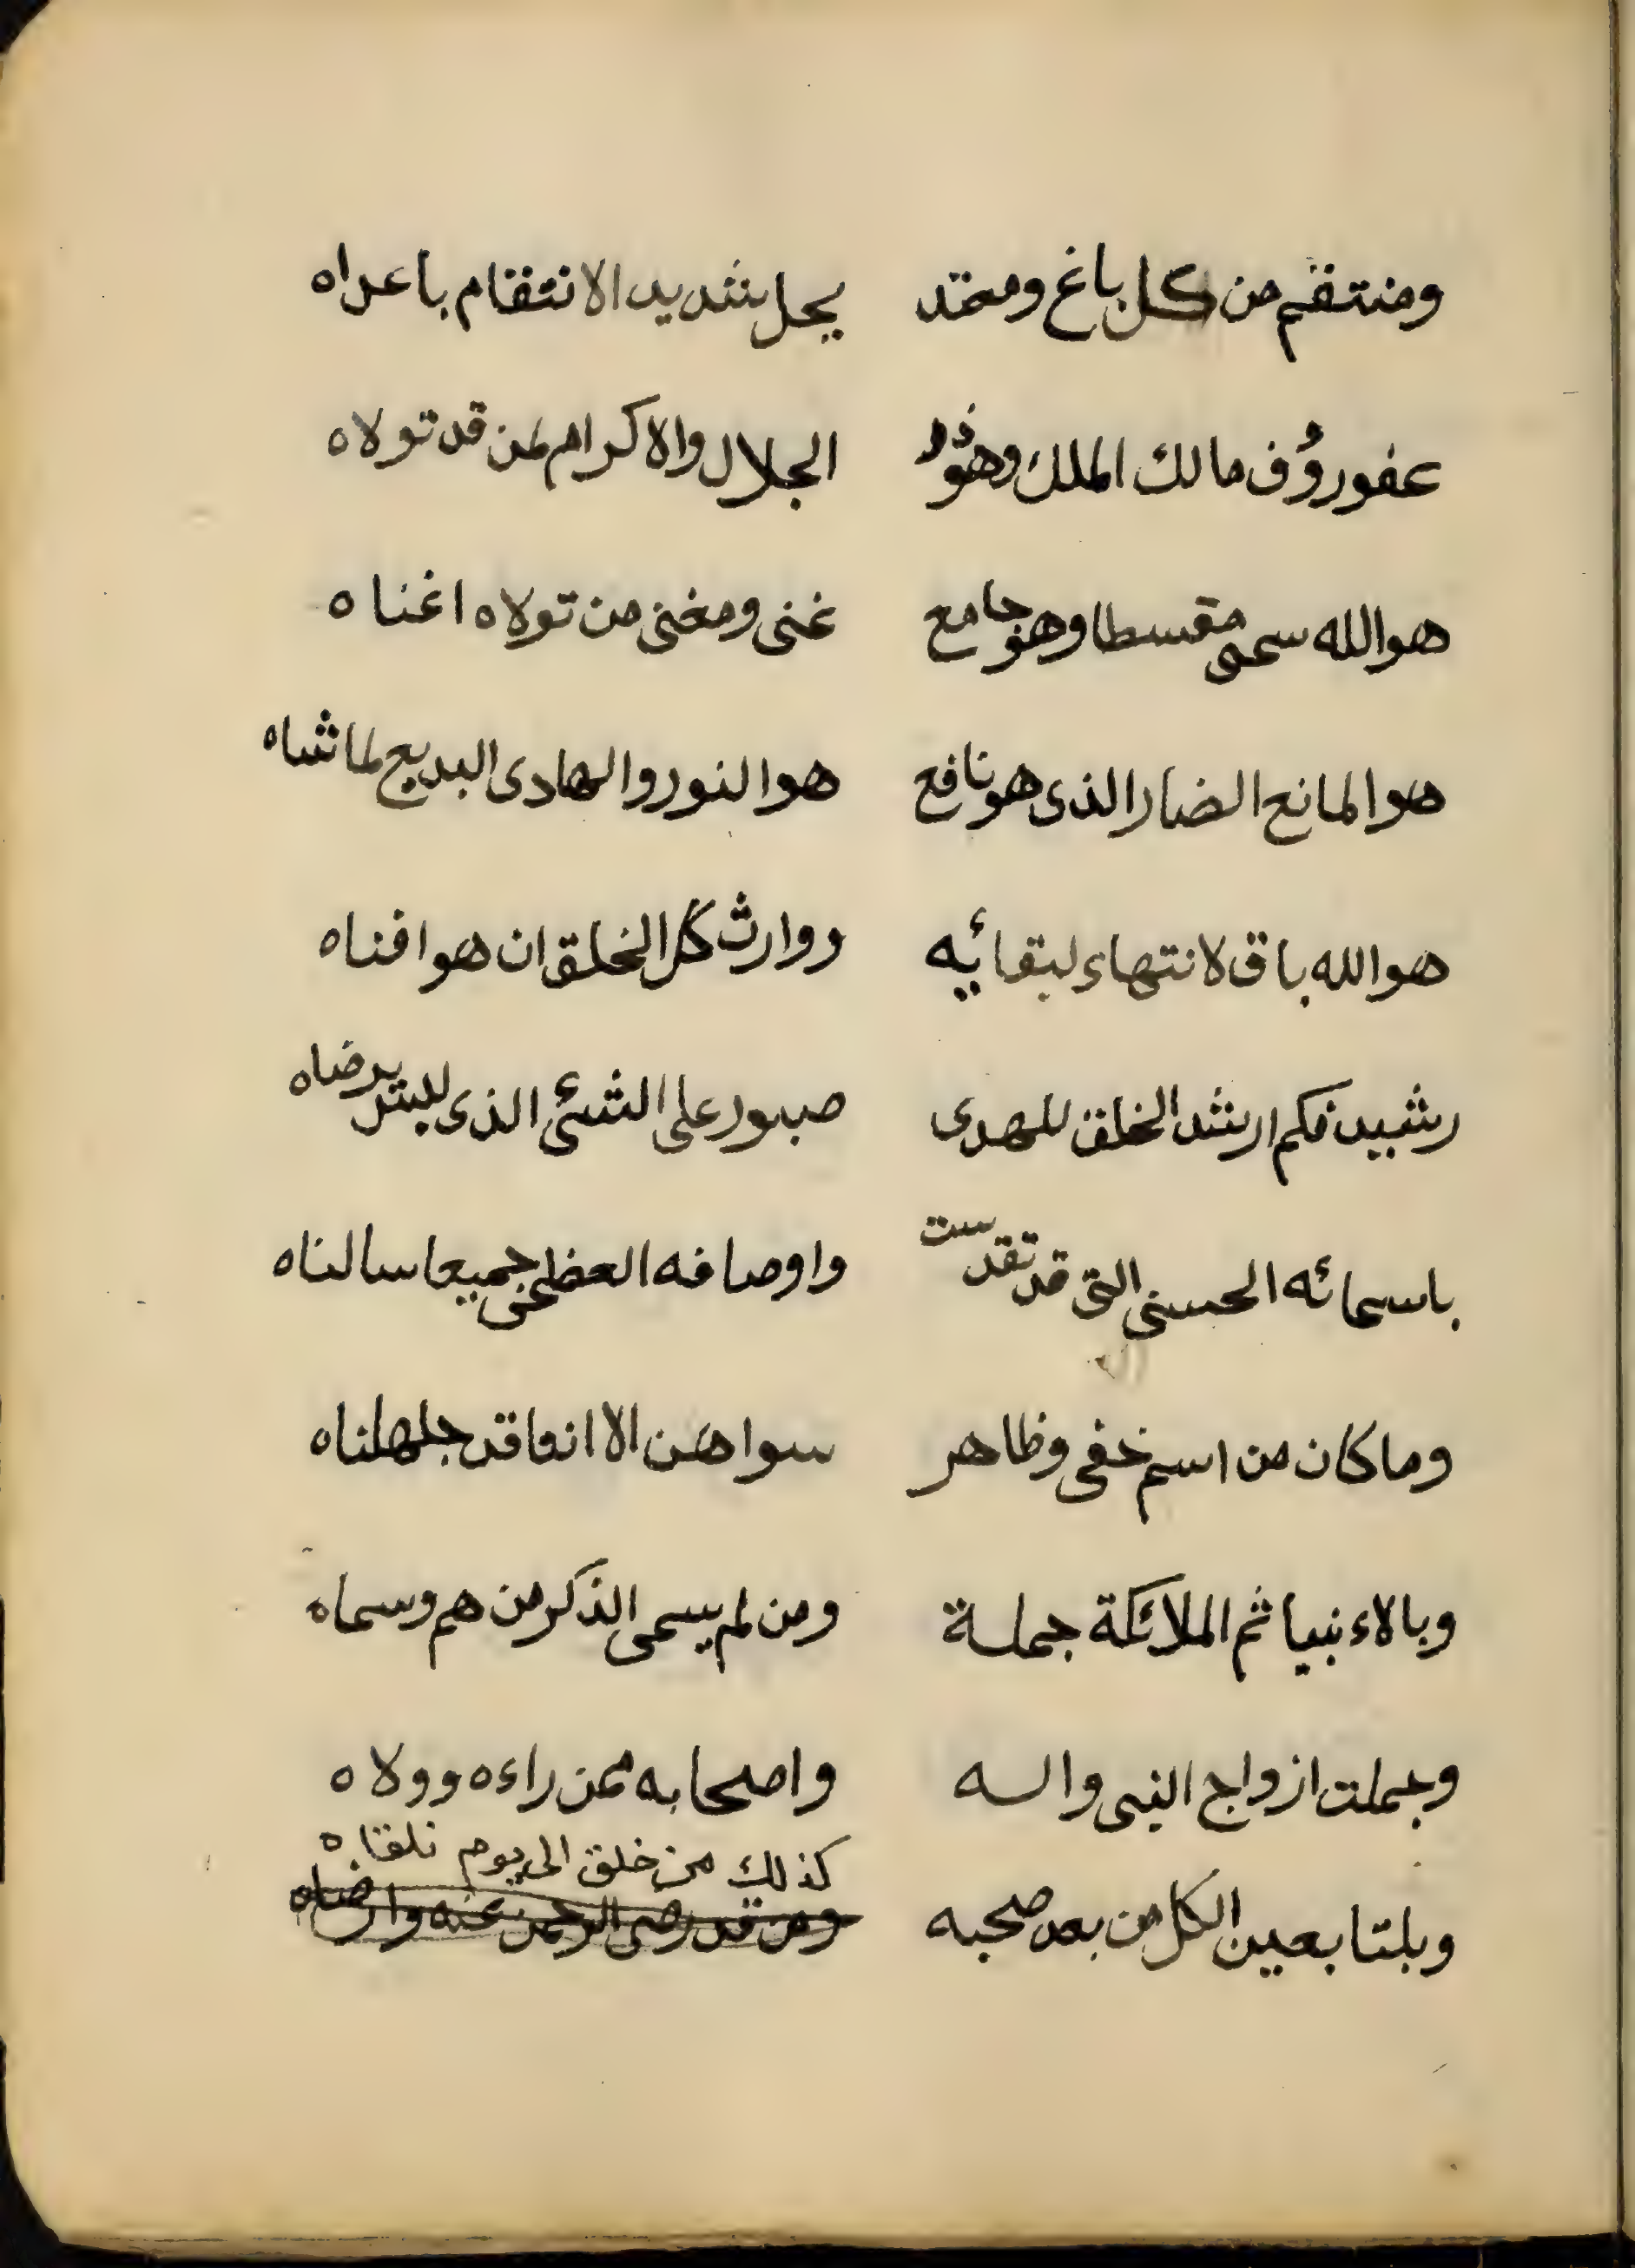 ومنتقم من كل باغ ومعتد يحل شديد الانتقام باعداه
عفو رؤف مالك الملك وهو ذو الجلال والاكرام لمن قد تولاه
هو الله سمى مقسطا وهو جامع غنى ومغنى من تولاه اغناه
هو المانع الضار الذى هو نافع هو النور والهادى البديع لما شاه
هو الله باق لا نتهاء لبقائيه ووارث كل الخلق ان هو افناه
رشيد فكم ارشد الخلق للهدى صبور على الشئى الذى ليس يرضاه
باسمائه الحسنى التى قد تقدست واوصافه العظمى جميعا سالناه
وما كان من اسم خفى وظاهر سواهن الا اننا قد جهلناه
وبالاءنبيا ثم الملائكة جملة ومن لم يسمى الذكر من هم وسماه
وجملت ازواج النبى واله واصحابه ممن راءه وولاه
كذلك من خلق الى يوم نلقاه
وبلتابعين الكل من بعد صحبه ومن قد رضى الرحمن عنه وارضاه